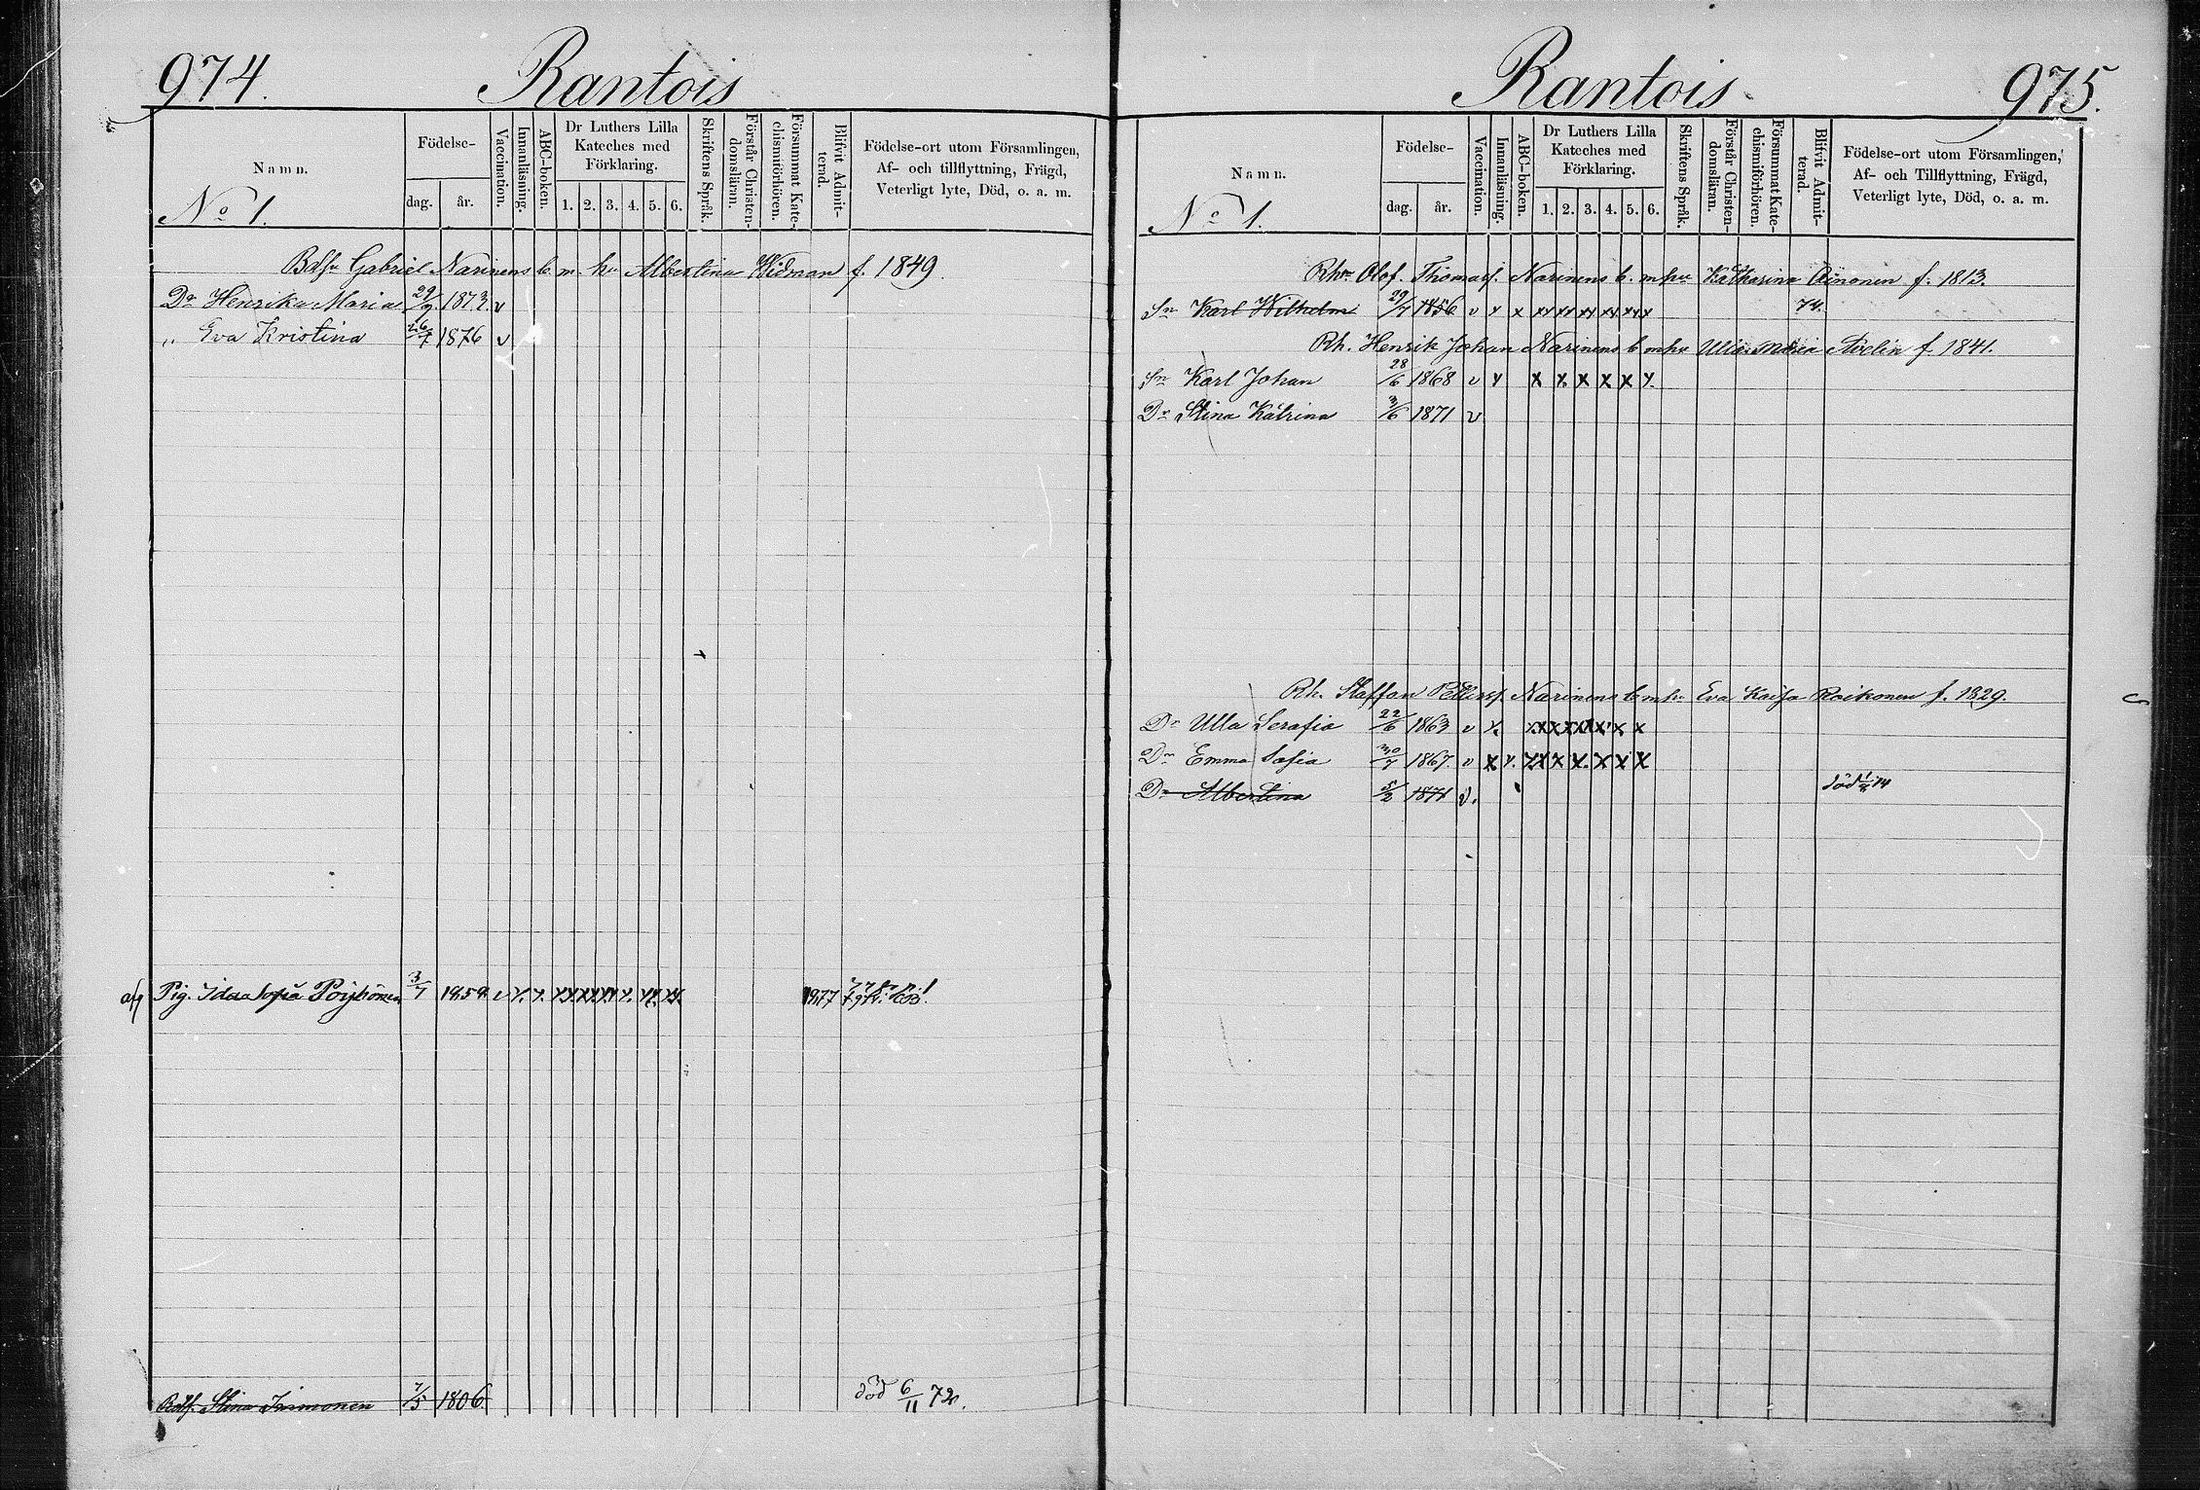 974.
Rantois
Namn.
No 1.
Födelse-
dag.
år.
Vaccination.
Innanläsning.
ABC-boken.
Dr Luthers Lilla
Kateches med
Förklaring.
1. 2. 3. 4. 5. 6.
Skriftens Språk.
Förstår Christen-
domsläran.
Försummat Kate-
chismiförhören.
Blifvit Admit-
terad.
Födelse-ort utom Församlingen,
Af- och tillflyttning, Frägd,
Veterligt lyte, Död, o. a. m.
Gabriel Narinens b. m. hu Albertina Widman f. 1849.
Dr Henrika Maria 29/9 1873. v
„ Eva Kristina 26/7 1876 v
Pig. Ida Sofia 3/7 1859 v 1877
Stina 7/5 1806.
död 6/11 72.
Rantois
975.
Namn.
No 1.
Födelse-
dag.
år.
Vaccination.
Innanläsning.
ABC-boken.
Dr Luthers Lilla
Kateches med
Förklaring.
1. 2. 3. 4. 5. 6.
Skriftens Språk.
Förstår Christen-
domsläran.
Försummat Kate-
chismiförhören.
Blifvit Admit-
terad.
Födelse-ort utom Församlingen,
Af- och Tillflyttning, Frägd,
Veterligt lyte, Död, o. a. m.
Olof Thomasf. Narinens b. m hu Katharina f. 1813.
Sn Karl Wilhelm 29/7 1856 v x x xx xx xx xx xx x 74.
Rh. Henrik Johan Narinens b m hu Ulla Maria f. 1841.
Sn Karl Johan 28/6 1868 v x x x x x x x
Dr Stina Katrina 3/6 1871 v
Rh. Staffan Pettersf. Narinens b m hu Eva Kaisa Roikonen f. 1829.
Dr Ulla Serafia 22/6 1863 v
Dr Emma Sofia 30/7 1867. v
Dr Albertina 5/2 1871 v.
död